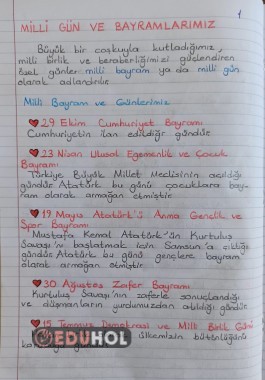 1
MİLLİ GÜN VE BAYRAMLARIMIZ
Büyük bir coşkuyla kutladığımız,
milli birlik ve beraberliğimizi güçlendiren
özel günler milli bayram ya da milli gün
olarak adlandırılır.
Milli Bayram ve Günlerimiz
29 Ekim Cumhuriyet Bayramı
Cumhuriyetin ilan edildiği gündür.
23 Nisan Ulusal Egemenlik ve Çocuk
Bayramı
Türkiye Büyük Millet Meclisinin açıldığı
gündür Atatürk bu günü çocuklara bay-
ram olarak armağan etmiştir.
19 Mayıs Atatürk'ü Anma Gençlik ve
Spor Bayramı
Mustafa Kemal Atatürk'ün Kurtuluş
Savaşı'nı başlatmak için Samsun'a çıktığı
gündür Atatürk bu günü gençlere bayram
olarak armağan etmiştir.
30 Ağustos Zafer Bayramı
Kurtuluş Savaşı'nın zaferle sonuçlandığı
ve düşmanların yurdumuzdan atıldığı gündür.
15 Temmuz Demokrasi ve Milli Birlik Günü
EDUHOL ülkemizin bütünlüğünü